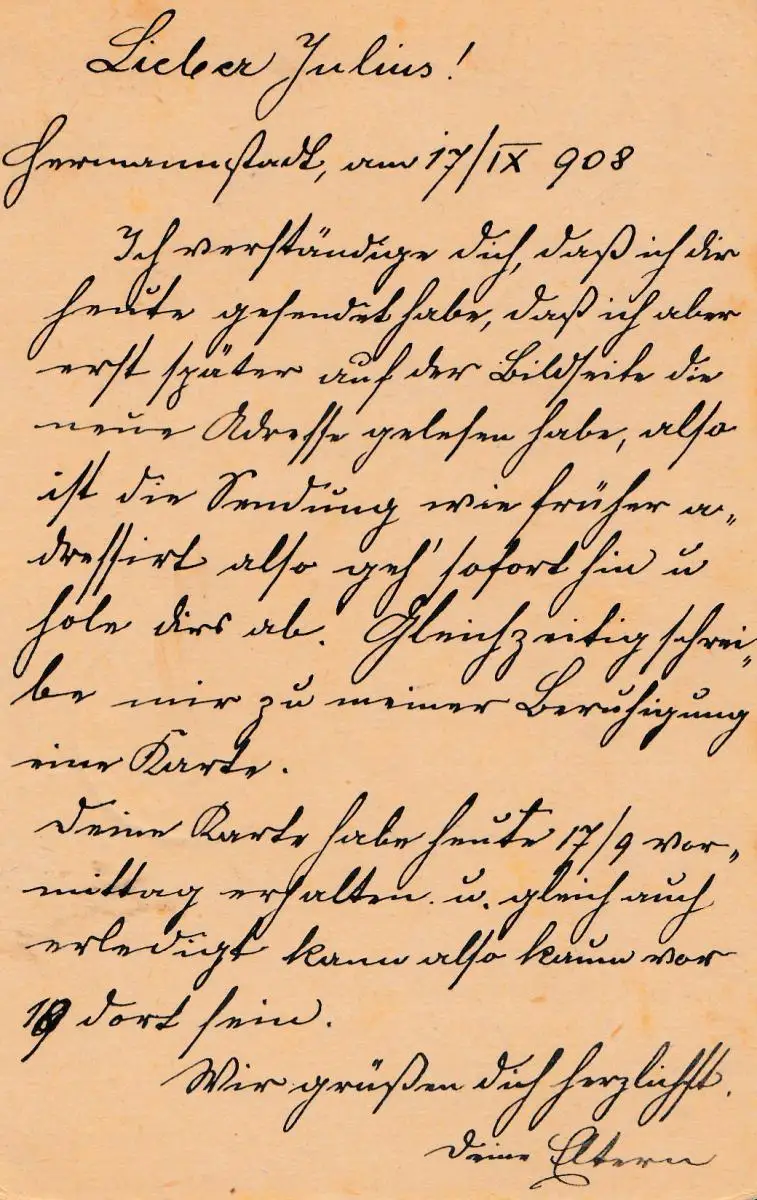 Lieber Julius!
Hermannstadt, am 17/IX 908
Ich verständige dich, daß ich dir
heute gesendet habe, daß ich aber
erst später auf der Bildseite die
neue Adresse gelesen habe, also
ist die Sendung wie früher a„
dressirt also geh' sofort hin u
hole dirs ab. Gleichzeitig schrei„
be mir zu meiner Beruhigung
eine Karte.
Deine Karte habe heute 17/9 vor„
mittag erhalten u. gleich auch
erledigt kann also kaum vor
19 dort sein.
Wir grüßen dich herzlichst.
Deine Eltern